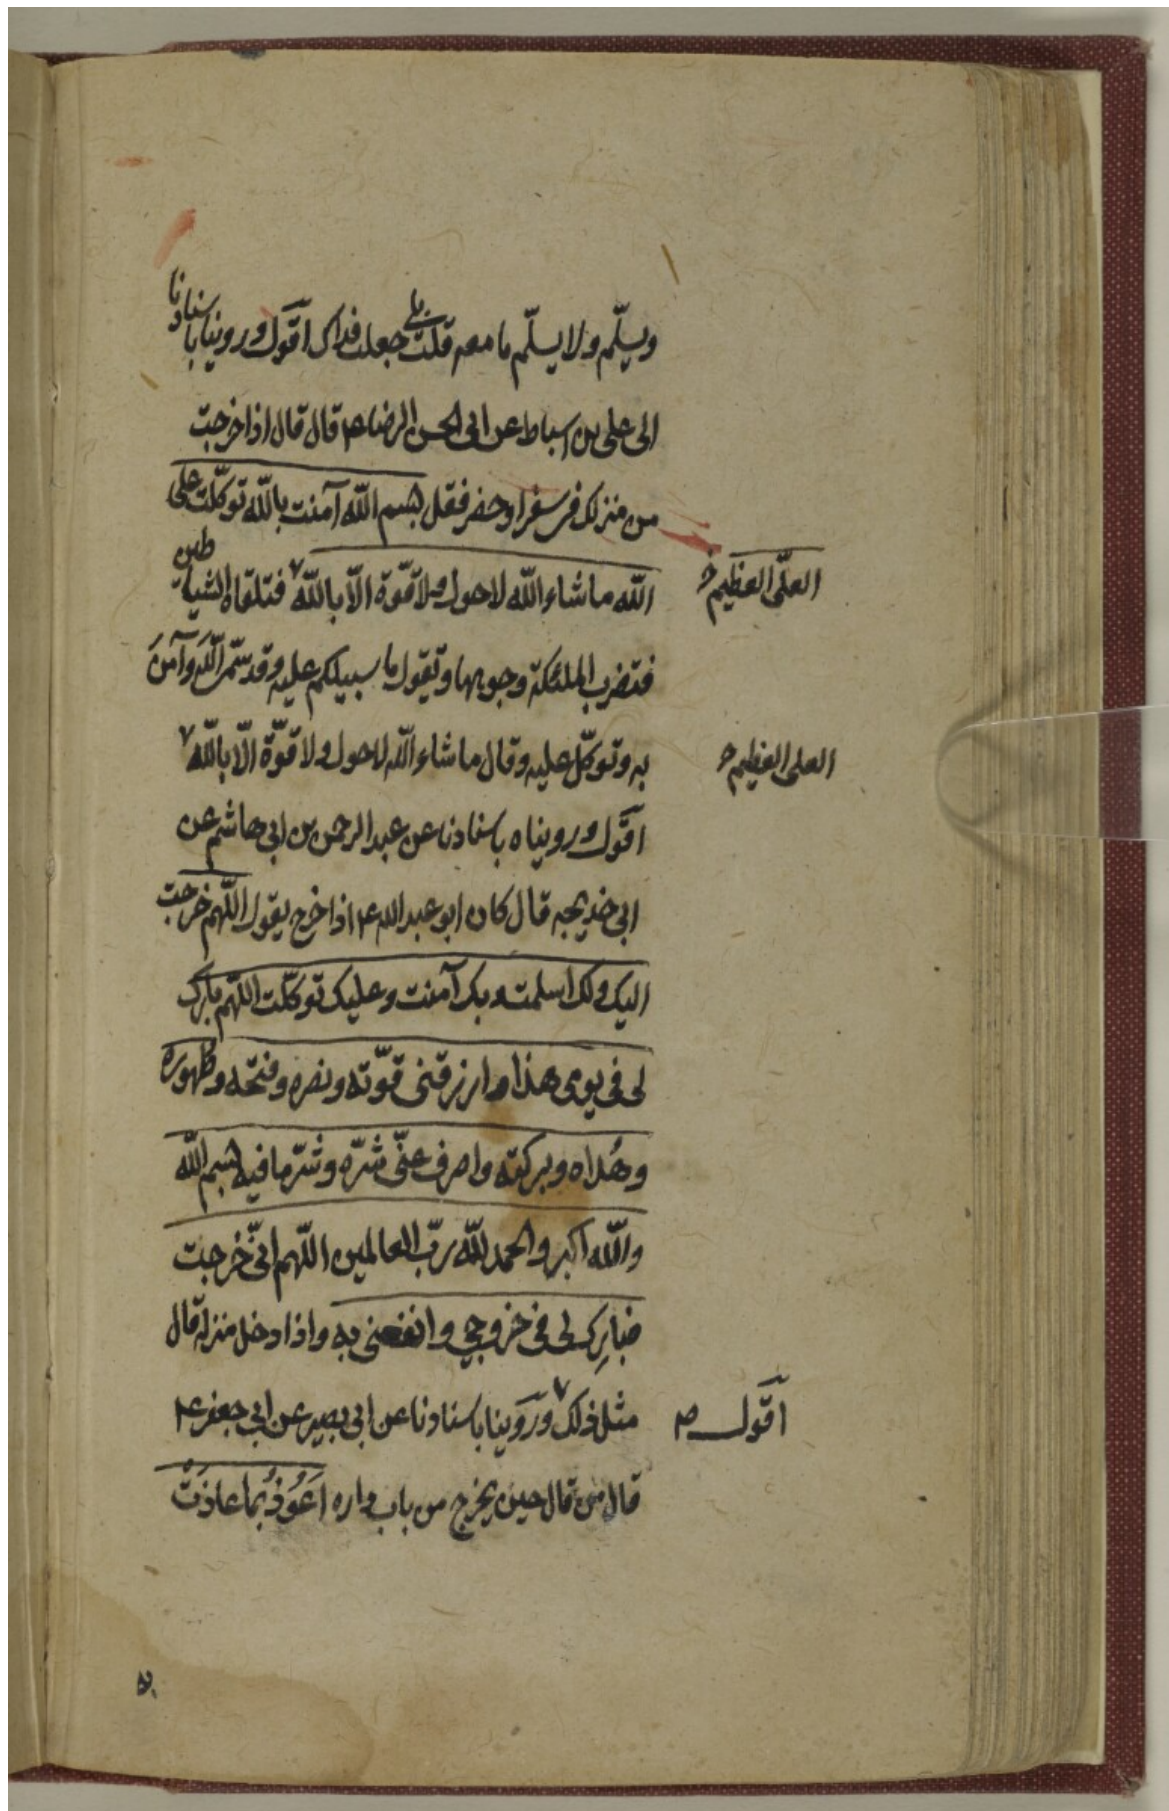 ويسلّم ولا يسلّم ما معه قلت بلى جعلت فداك اقول وروينا باسنادنا
الى على بن اسباط عن ابى الحسن الرضا ع قال قال اذا خرجت
من منزلك فى سفر او حضر فقل بسم الله آمنت بالله توكّلت على
الله ما شاء الله لا حول ولا قوّة الّا بالله ٧ فتلقاه الشياطين
العلىّ العظيم خ
فتضرب الملئكة وجوهها وتقول ما سبيلكم عليه وقد سمّى اللّه وآمن
به وتوكّل عليه وقال ما شاء اللّه لا حول ولا قوّة الّا باللّه ٧
العلى العظيم خ
اقول ورويناه باسنادنا عن عبد الرحمن بن ابى هاشم عن
ابى خديجه قال كان ابو عبد الله ع اذا خرج يقول اللّهم خرجت
اليك ولك اسلمت وبك آمنت وعليك توكّلت اللّهم بارك
لى فى يومى هذا وارزقنى قوّته ونصره وفتحه وطهوره
وهُداه وبركته واصرف عنّى شرّه وشرّ ما فيه بسم اللّه
واللّه اكبر والحمد للّه ربّ العالمين اللّهم انّى خرجت
فبارِك لى فى خروجى وانفعنى به واذا دخل منزله قال
مثل ذلك ٧ وروينا باسنادنا عن ابى بصير عن ابى جعفر ع
اقول ص
قال من قال حين يخرج من باب داره اَعُوذُ بما عاذَتْ